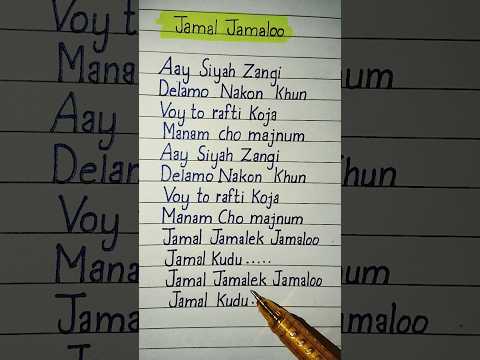 Jamal Jamaloo
Aay Siyah Zangi
Delamo Nakon Khun
Voy to rafti Koja
Manam cho majnum
Aay Siyah Zangi
Delamo Nakon Khun
Voy to rafti Koja
Manam Cho majnum
Jamal Jamalek Jamaloo
Jamal Kudu.....
Jamal Jamalek Jamaloo
Jamal Kudu.